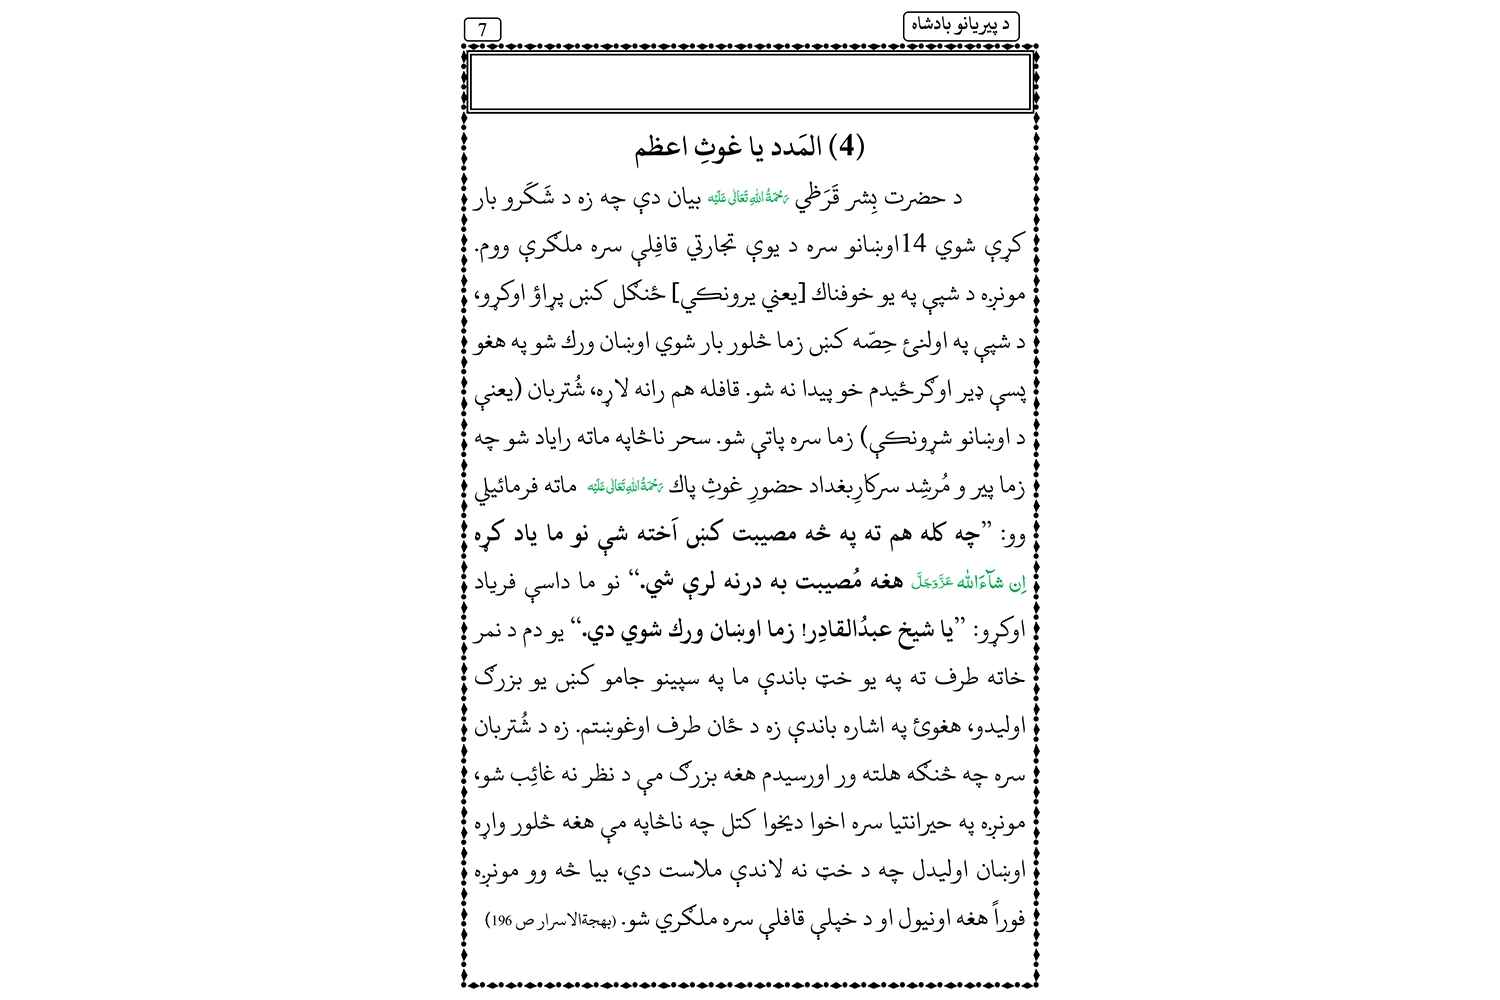 د پيريانو بادشاه
7
(4) المَدد يا غوثِ اعظم
د حضرت بِشر قَرَظي رَحْمَةُ اللهِ تَعَالٰی عَلَيْه بيان دې چه زه د شَکَرو بار
کړې شوي 14اوښانو سره د يوې تجارتي قافِلې سره ملګرې ووم.
مونږه د شپې په يو خوفناك [يعني يرونکي] ځنګل کښ پړاؤ اوکړو،
د شپې په اولنئ حِصّه کښ زما څلور بار شوي اوښان ورك شو په هغو
پسې ډير اوګرځيدم خو پيدا نه شو. قافله هم رانه لاړه، شُتربان (يعنې
د اوښانو شړونکې) زما سره پاتې شو. سحر ناڅاپه ماته راياد شو چه
زما پير و مُرشِد سرکارِبغداد حضورِ غوثِ پاك رَحْمَةُ اللهِ تَعَالٰی عَلَيْه ماته فرمائيلي
وو: ”چه کله هم ته په څه مصيبت کښ اَخته شې نو ما ياد کړه
اِن شآءَالله عَزَّوَجَلَّ هغه مُصيبت به درنه لرې شي.“ نو ما داسې فرياد
اوکړو: ”يا شيخ عبدُالقادِر! زما اوښان ورك شوي دي.“ يو دم د نمر
خاته طرف ته په يو خټ باندې ما په سپينو جامو کښ يو بزرګ
اوليدو، هغوئ په اشاره باندې زه د ځان طرف اوغوښتم. زه د شُتربان
سره چه څنګه هلته ور اورسيدم هغه بزرګ مې د نظر نه غائِب شو،
مونږه په حيرانتيا سره اخوا ديخوا کتل چه ناڅاپه مې هغه څلور واړه
اوښان اوليدل چه د خټ نه لاندې ملاست دي، بيا څه وو مونږه
فوراً هغه اونيول او د خپلې قافلې سره ملګري شو. (بهجةالاسرار ص 196)